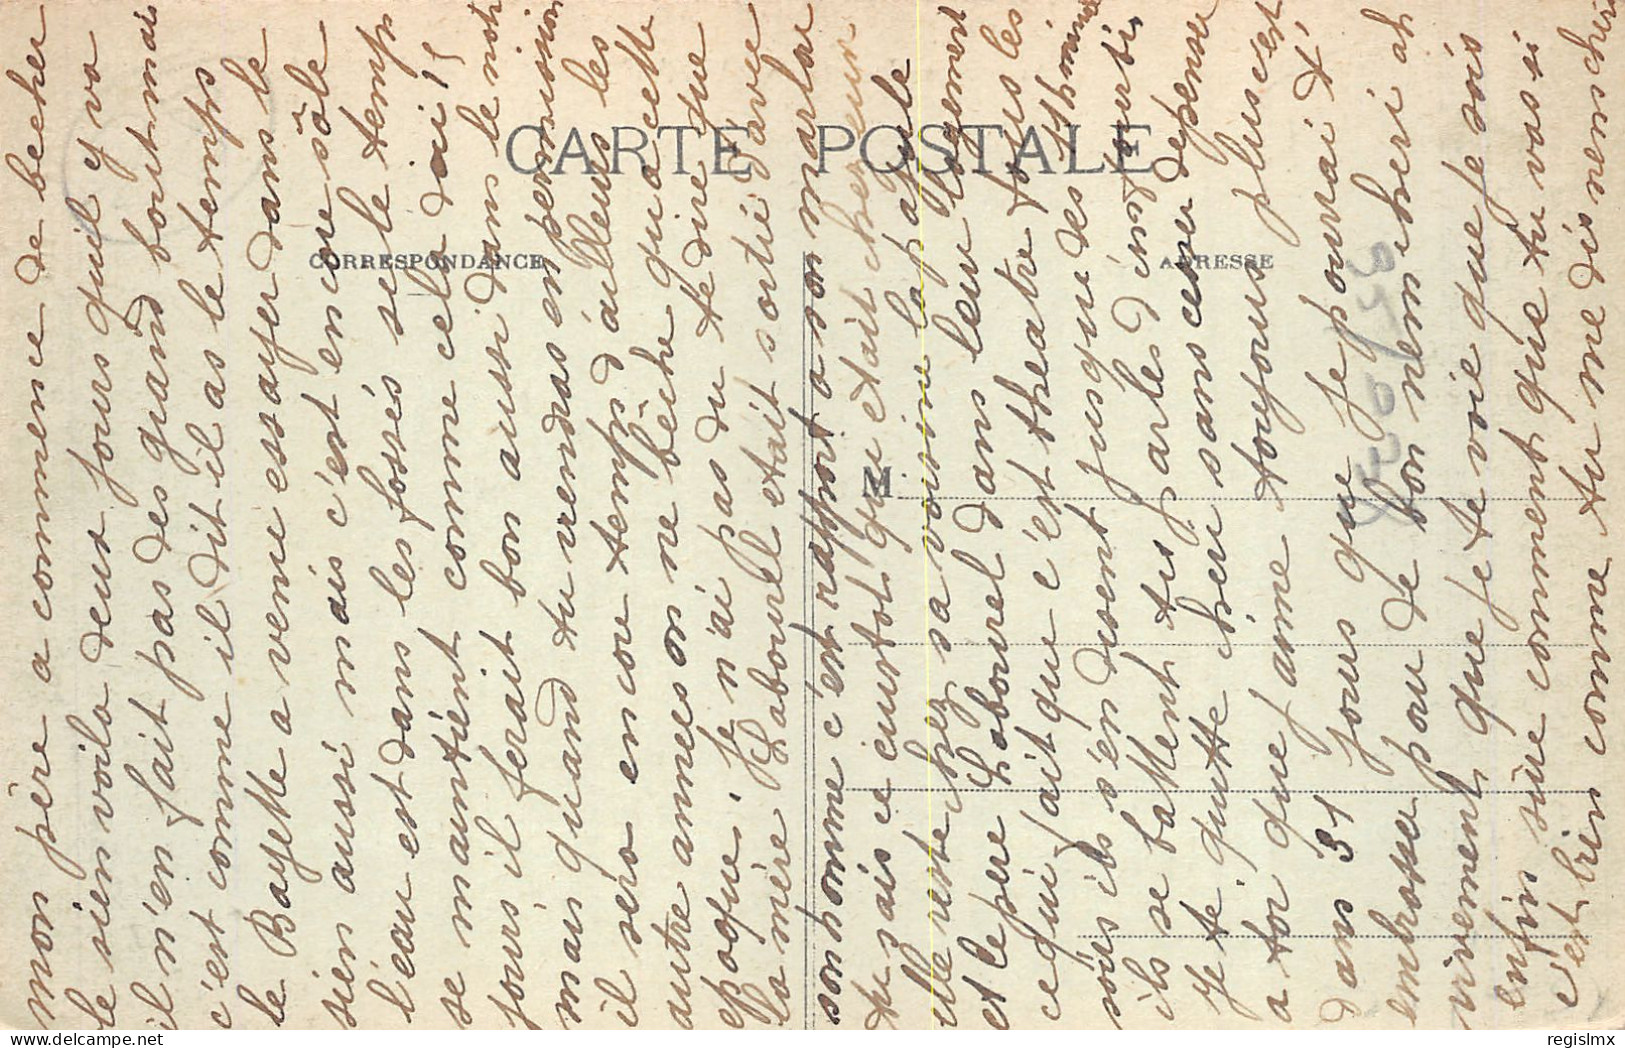 CARTE POSTALE
CORRESPONDANCE
ADRESSE
M
mon père a commence de becher
le sien voila deux jours quil y va
il n'en fait pas des grand bout mais
c'est comme il dit il as le temps
le Bayette a venue essayer dans le
sien aussi mais c'est encore sâle
l'eau est dans les fossés se le temp
se mauntient comme cela dici 15
jours il ferait bon aussi dans le notre
mais quand tu viendras en permission
il sera encore temps d'ailleurs les
autre annees on ne bêche qu'a cette
epoque. Je n'ai pas du te dire que
la mère Labourel etait sortie d'avec
son homme c'est rapport a son
tu sais ce curtot qui etait chez eux
elle reste chez sa voisine la pale
et le pere Labourel dans leur logement
ce qui fait que c'est theatre tous les
soirs ils s'en disent jusque des
ils se battent tis parles d'ins
Je te quitte cheri sans cesser de penser
a toi que j'aime toujours plus et
dans 31 jours que je pourrai t'
embrasser pour de bon mon cheri ah
vivement que je te voie que je sois
enfin sûre comment que tu vas si
c'est bien comme tu me dis mon cheri